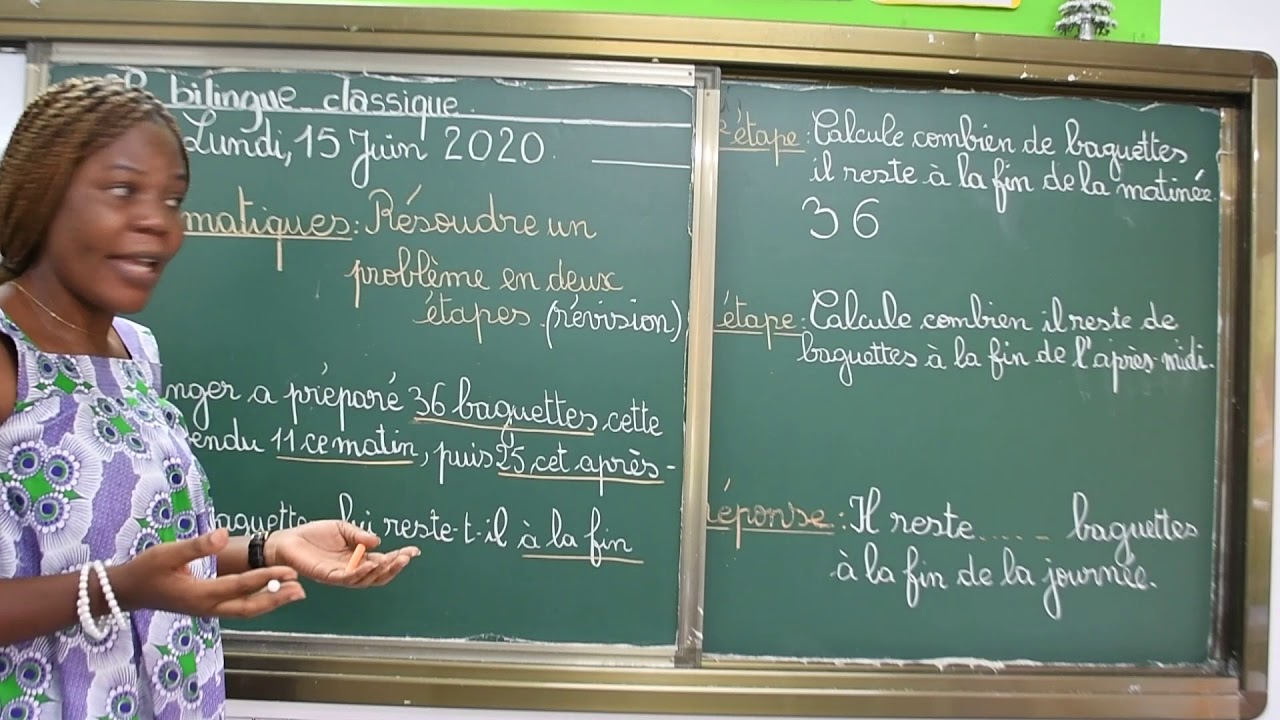 bilingue classique
Lundi, 15 Juin 2020.
matiques: Résoudre un
problème en deux
étapes. (révision)
nger a préparé 36 baguettes cette
endu 11 ce matin, puis 25 cet après-
reste-t-il à la fin
étape: Calcule combien de baguettes
il reste à la fin de la matinée.
36
étape: Calcule combien il reste de
baguettes à la fin de l'après-midi.
réponse: Il reste..... baguettes
à la fin de la journée.